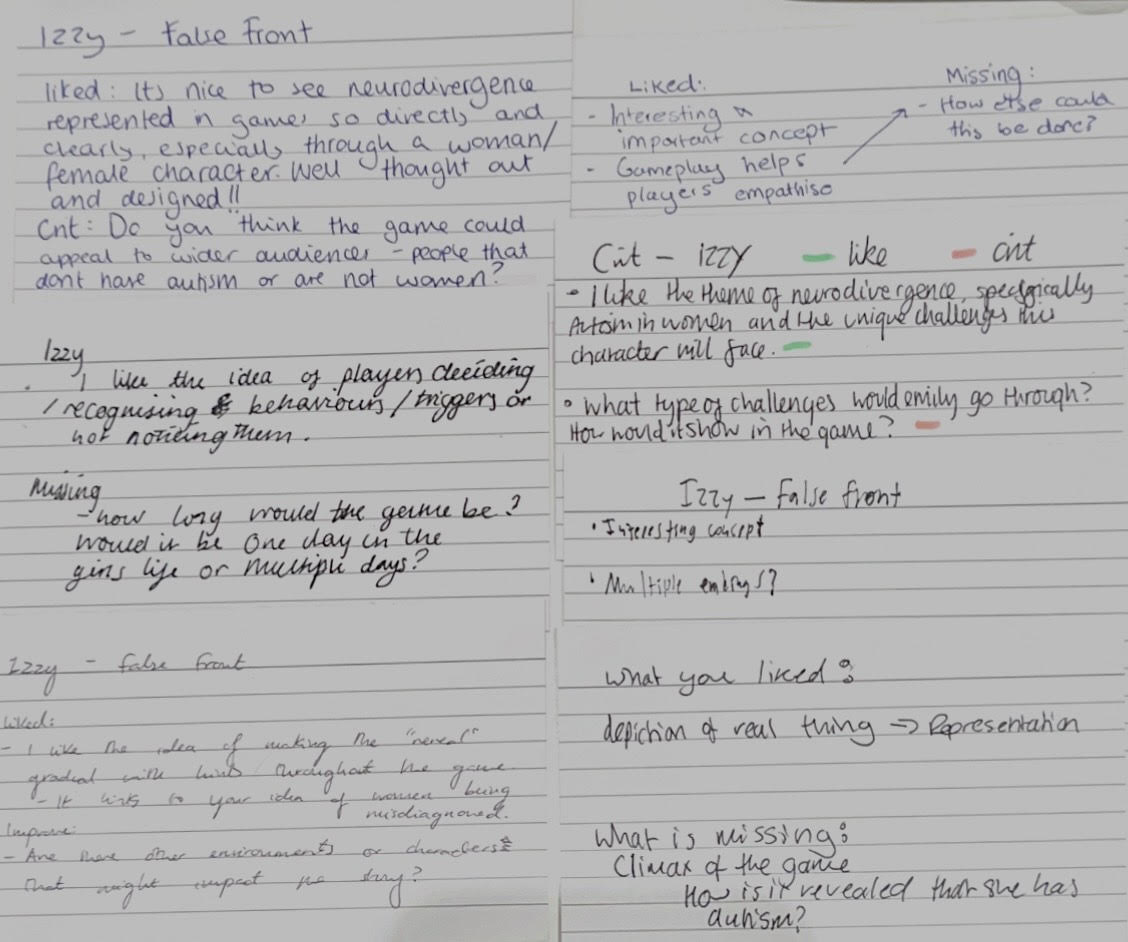 Izzy - False Front
liked: Its nice to see neurodivergence
represented in games so directly and
clearly, especially through a woman/
female character. Well thought out
and designed!!
Cnt: Do you think the game could
appeal to wider audiences - people that
dont have autism or are not women?
Liked:
- Interesting &
important concept
- Gameplay helps
players empathise
Missing:
- How else could
this be done?
Crit - Izzy - like - crit
• I like the theme of neurodivergence, specifically
Autism in women and the unique challenges this
character will face. -
• What type of challenges would emily go through?
How would it show in the game? -
Izzy
• I like the idea of players deciding
/ recognising & behaviours / triggers or
not noticing them.
Missing
- how long would the game be?
would it be one day in the
girls life or multiple days?
Izzy - False front
• Interesting concept
• Multiple endings?
Izzy - False Front
Liked:
- I like the idea of making the "reveal"
gradual with hints throughout the game
- It links to your idea of women being
misdiagnosed.
Improve:
- Are there other environments or characters
that might impact the story?
What you liked:
depiction of real thing => Representation
What is missing:
Climax of the game
How is it revealed that she has
autism?